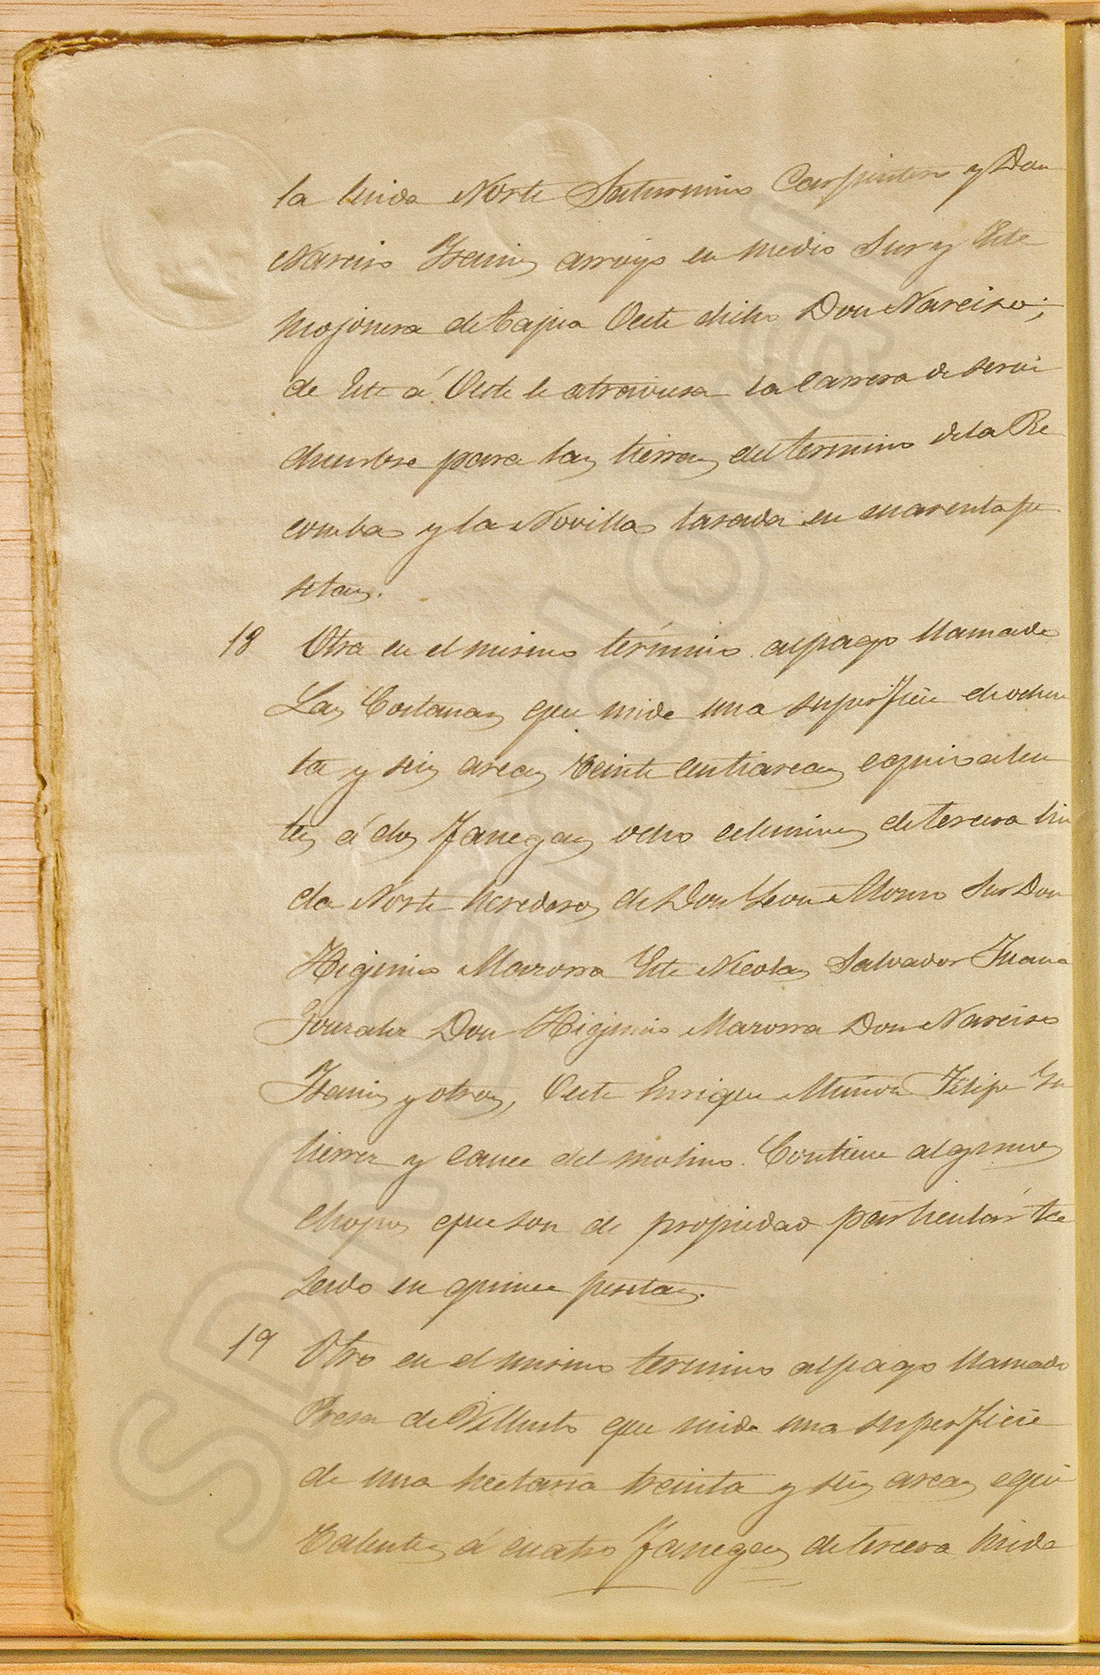 la linda Norte Saturnino Carpintero y Don
Narciso Isanis arroyo en medio Sur y Este
mojonera de Tapia Oeste dicho Don Narciso;
de Este á Oeste le atraviesa la Carrera de servi
dumbre para las tierras del termino de la Re
comba y la Novilla tasada en cuarenta pe
setas.
18 Otra en el mismo término al pago llamado
Las Costanas que mide una superficie de ochen
ta y seis areas veinte centiareas equivalen
tes á dos fanegas ocho celemines de tercera lin
da Norte herederos de Don Leon Alonso Sur Don
Higinio Marorra Este Nicolas Salvador Juana
Gonzalez Don Higinio Marorra Don Narciso
Isanis y otros, Oeste Enrique Muñoz Felipe Gu
tierrez y cauce del molino. Contiene algunos
chopos que son de propiedad particular ta
sado en quince pesetas.
19 Otro en el mismo termino al pago llamado
Presa de que mide una superficie
de una hectarea treinta y seis areas equi
valentes á cuatro fanegas de tercera linda
SDP Segoldovieja